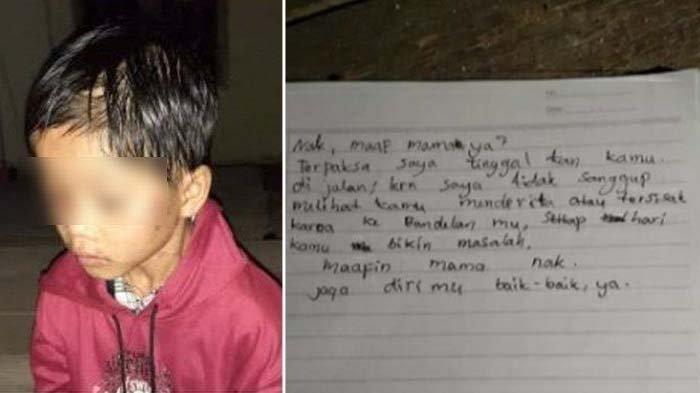 Nak, maap mama ya?
Terpaksa saya tinggal kan kamu.
di jalan, krn saya tidak sanggup
mulihat kamu minderita atau tersisak
karna ke Bandelan mu, Setiap hari
kamu bikin masalah.
maapin mama nak.
jaga diri mu baik-baik, ya.